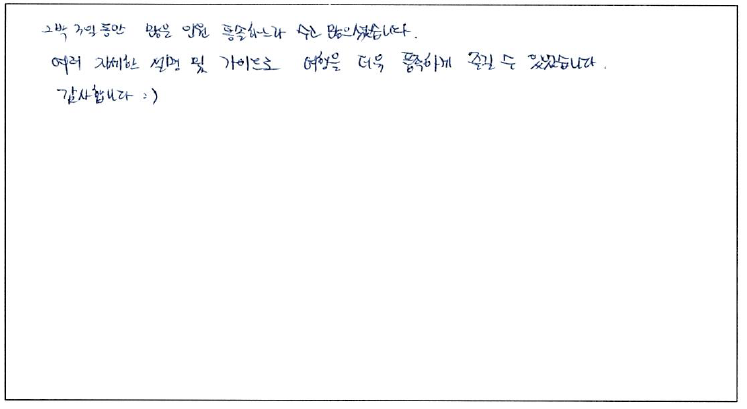 2박 3일 동안 많은 인원 통솔하느라 수고 많으셨습니다.
여러 자세한 설명 및 가이드로 여행을 더욱 풍족하게 즐길 수 있었습니다.
감사합니다 :)